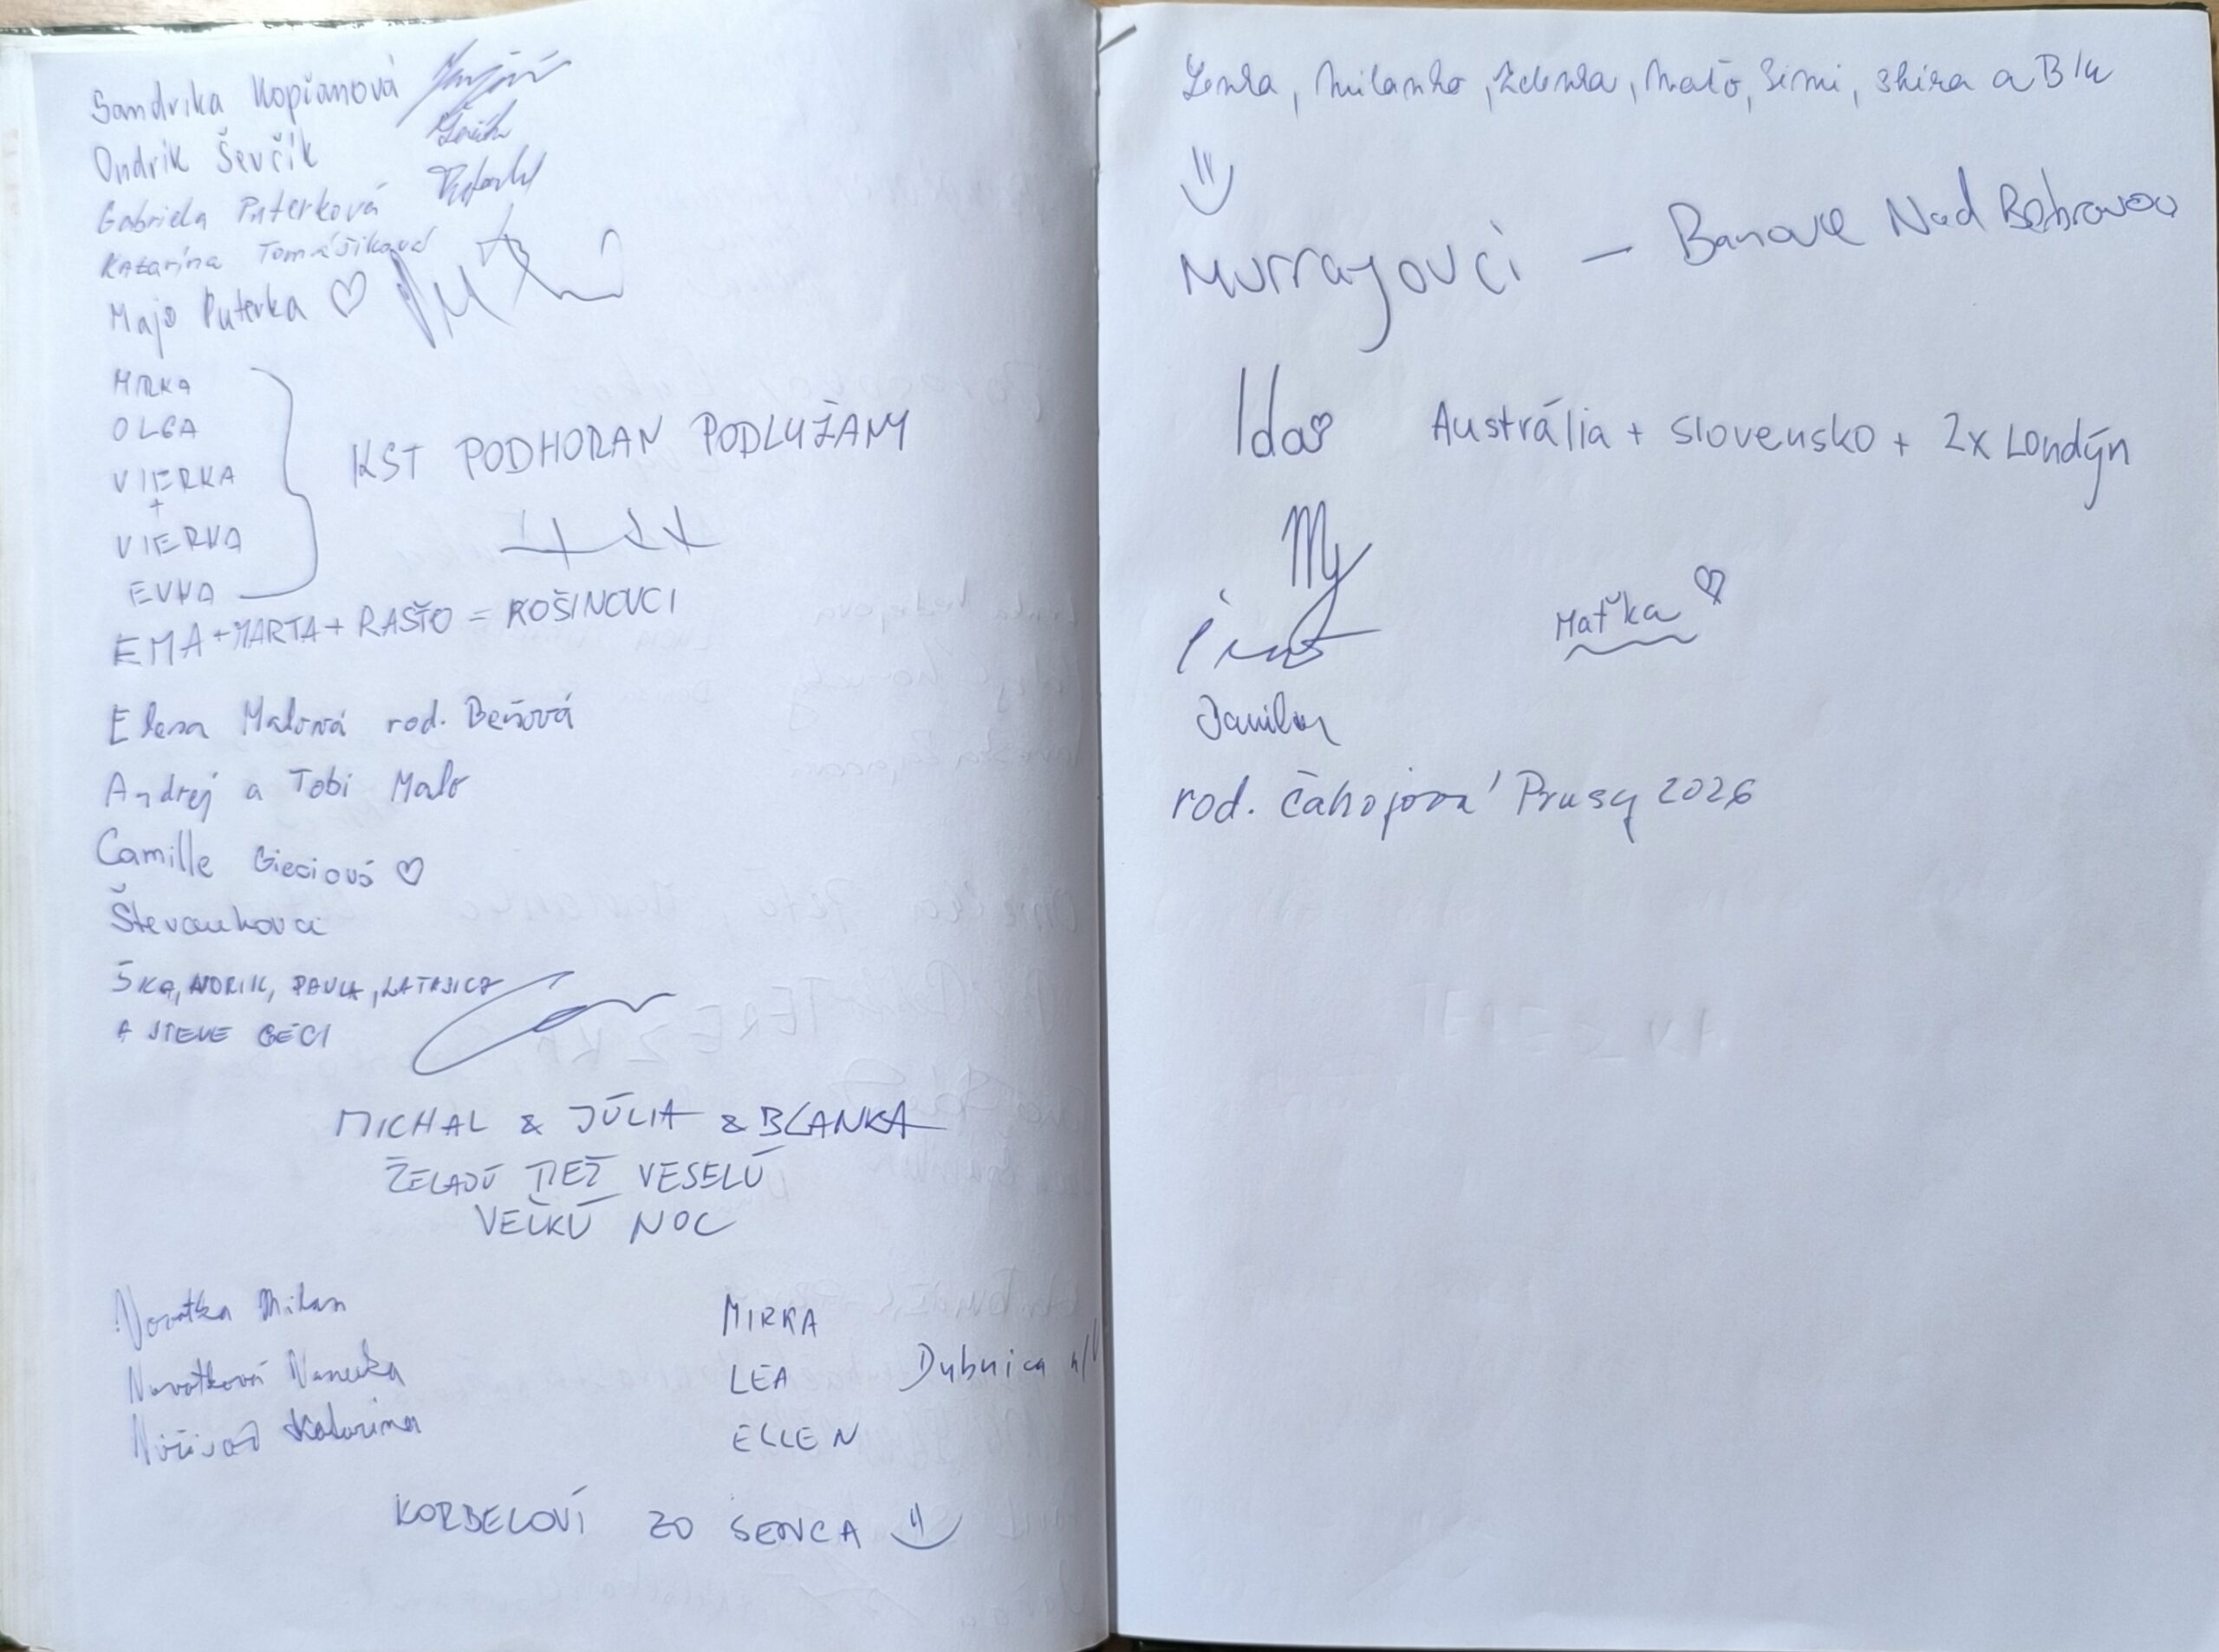 Sandrika Kopčanová
Ondrik Ševčík
Gabriela Puterková
Katarína Tomášiková
Majo Puterka ♡
MIRKA
OLGA
VIERKA
+
VIERKA
EVKA
KST PODHORAN PODLUŽANY
EMA + MARTA + RASŤO = KOŠINOVCI
Elena Malová rod. Beňová
Andrej a Tobi Malo
Camille Gieciová ♡
Števankovci
PAVLA,
A STEVE GÉCI
MICHAL & JÚLIA & BLANKA
ŽELAJÚ TIEŽ VESELÚ
VEĽKÚ NOC
Novotka Milan
Novotková
Katarína
MIRKA
LEA Dubnica n/V
ELLEN
KORBELOVÍ ZO SENCA
Lenka, Milanko, Zdenka, Maťo, Simi, Shira a
Murrayovci – Banovce Nad Bebravou
Ida Austrália + Slovensko + 2x Londýn
My
Maťka ♡
Danilor
rod. Čahojova' Prusy 2026